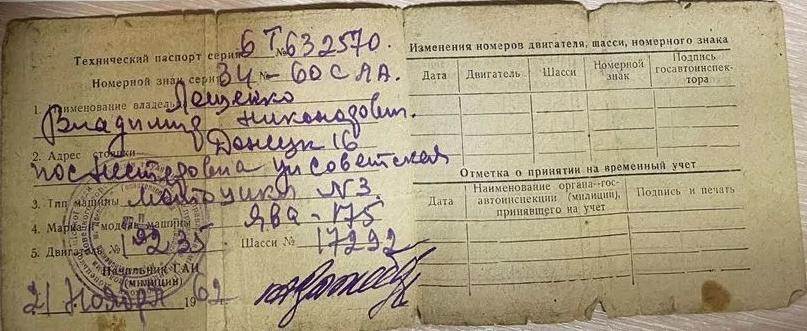 Технический паспорт серия 6Т № 632570.
Номерной знак серия 34 № - 60 СЛА.
1. Наименование владельца Лещенко
Владимир Никонорович.
2. Адрес стоянки Донецк 16
ул Советская
3. Тип машины №3
4. Марка и модель машины Ява - 175
5. Двигатель № Шасси № 17292
Начальник ГАИ
(милиции)
21 Ноября 1962
Изменения номеров двигателя, шасси, номерного знака
Дата Двигатель Шасси Номерной знак Подпись госавтоинспектора
Отметка о принятии на временный учет
Дата Наименование органа госавтоинспекции (милиции), принявшего на учет Подпись и печать